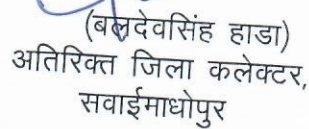 (बलदेवसिंह हाडा)
अतिरिक्त जिला कलेक्टर,
सवाईमाधोपुर